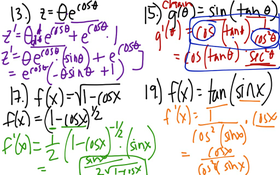 13.) z = θe^cosθ
z' = θe^cosθ · (-sinθ) + e^cosθ · 1
z' = e^cosθ (-θsinθ + 1)
15.) g(θ) = sin(tanθ)
chain
g'(θ) = cos(tanθ) · 1/cos²θ
= cos(tanθ) sec²θ
17.) f(x) = √1-cosx
f(x) = (1-cosx)^1/2
f'(x) = 1/2 (1-cosx)^-1/2 · (sinx)
= sinx / 2√1-cosx
19.) f(x) = tan(sinx)
f'(x) = 1/cos²(sinx) · cosx
= cosx / cos²(sinx)